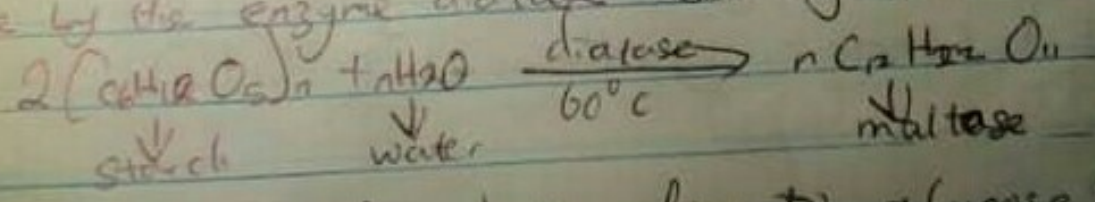 by the enzyme
2(C6H12O5)n + nH2O diatase 60°C nC12H22O11
starch water maltase